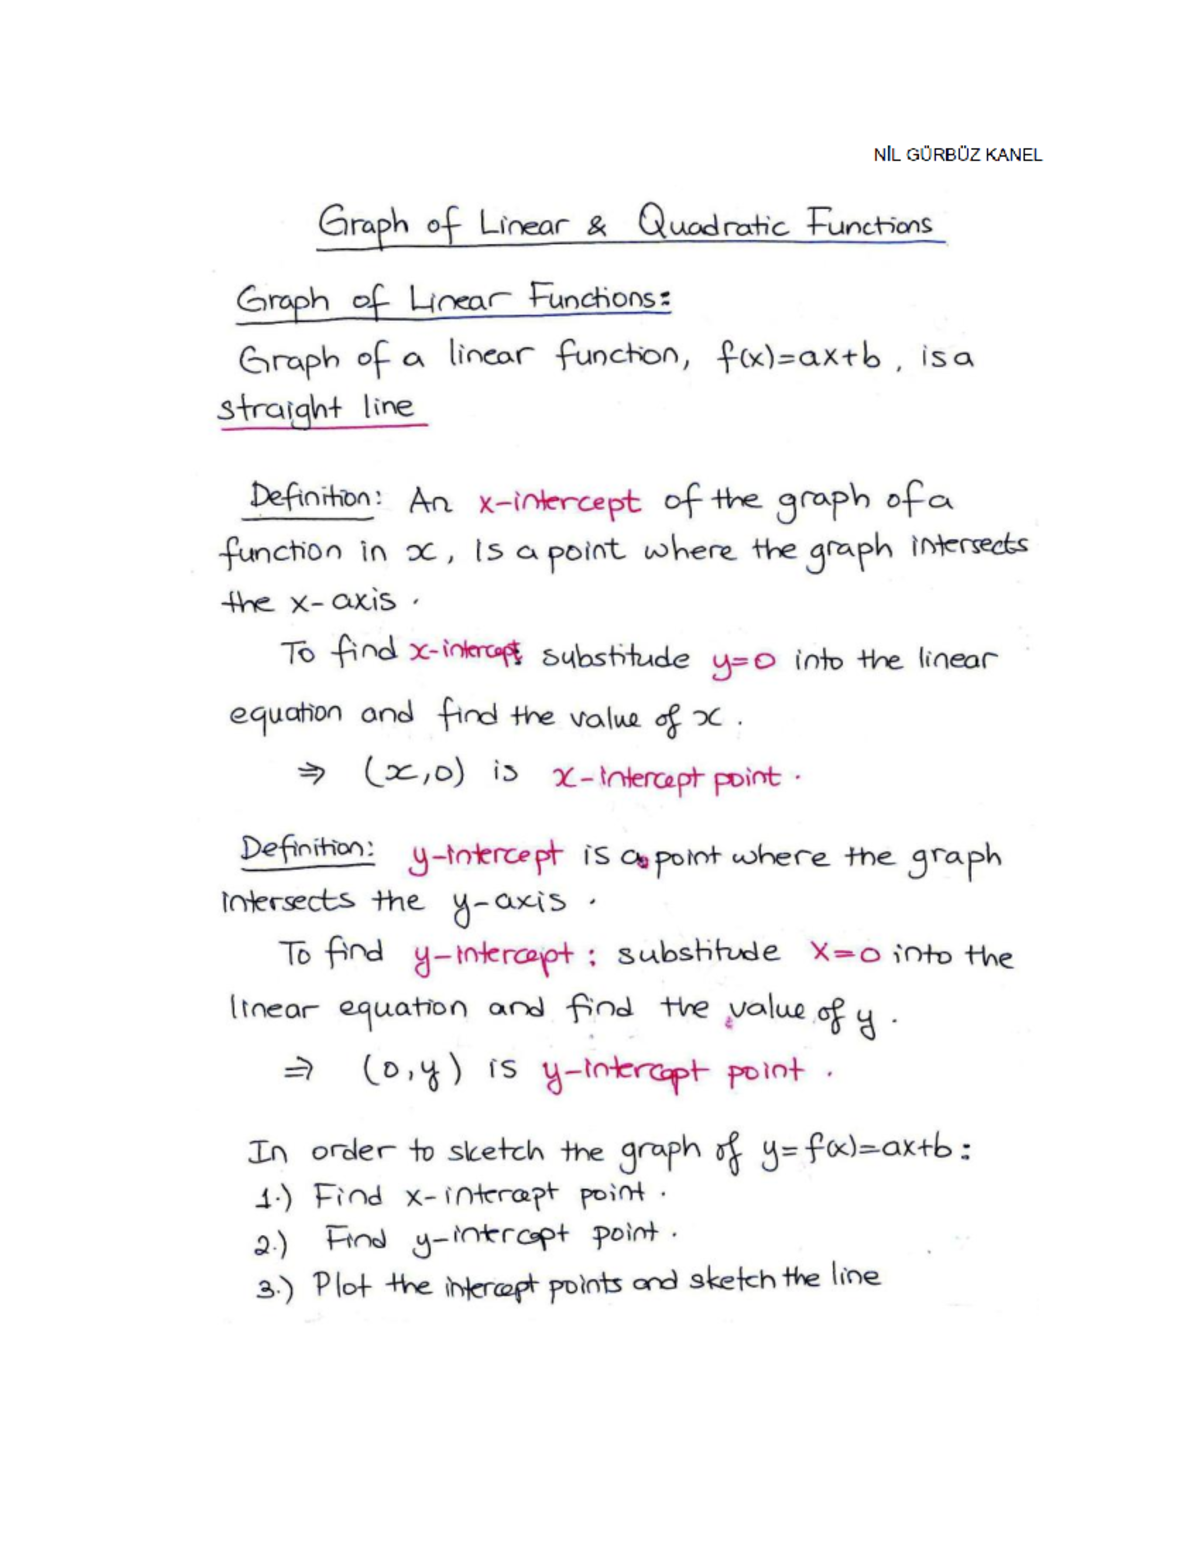 NİL GÜRBÜZ KANEL
Graph of Linear & Quadratic Functions
Graph of Linear Functions:
Graph of a linear function, f(x)=ax+b, is a
straight line
Definition: An x-intercept of the graph of a
function in x, is a point where the graph intersects
the x-axis.
To find x-intercept: substitude y=0 into the linear
equation and find the value of x.
⇒ (x,0) is x-intercept point.
Definition: y-intercept is a point where the graph
intersects the y-axis.
To find y-intercept: substitude x=0 into the
linear equation and find the value of y.
⇒ (0,y) is y-intercept point.
In order to sketch the graph of y=f(x)=ax+b:
1.) Find x-intercept point.
2.) Find y-intercept point.
3.) Plot the intercept points and sketch the line